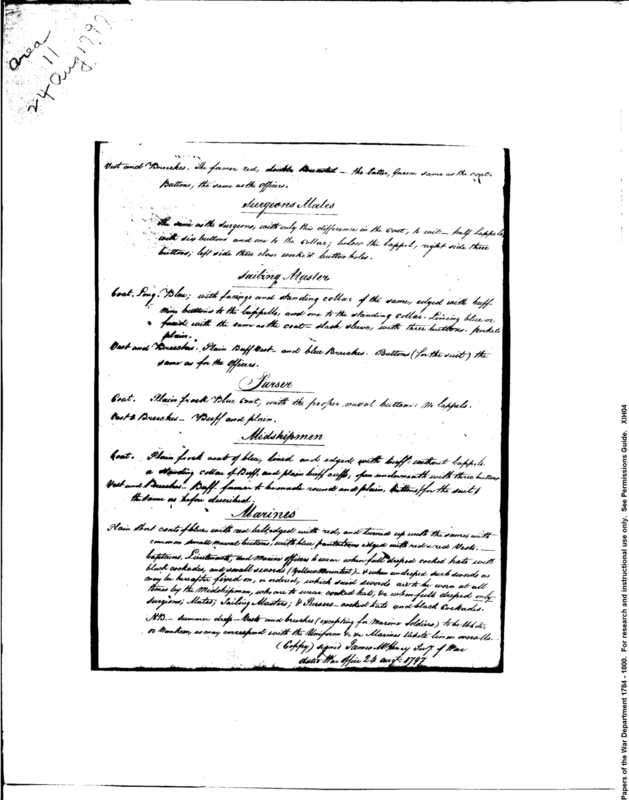 area
11
24 Aug 1797
Vest and Breeches. The former red, double Breasted – the latter, Green same as the coat.
Buttons, the same as the officers.
Surgeons Mates
The same as the surgeons, with only this difference in the coat, to wit – half lappels
with six buttons and one to the collar; below the lappel, right side three
buttons; left side three close work'd button holes.
Sailing Master
Coat. Long. Blue; with facings and standing collar of the same, edged with buff.
nine buttons to the lappells, and one to the standing collar. Lining blue or
faced with the same as the coat – slash sleeve, with three buttons. pockets
plain.
Vest and Breeches. Plain Buff Vest – and blue Breeches. Buttons (for the suit) the
same as for the officers.
Purser
Coat. Plain frock Blue coat, with the proper naval buttons: No lapels.
Vest & Breeches – Buff and plain.
Midshipmen
Coat. Plain frock coat of blue, lined and edged with buff: without lappels.
a standing collar of Buff, and plain buff cuffs, open underneath with three buttons
Vest and Breeches – Buff. former to be made round and plain, Buttons for the suit
the same as before described.
Marines
Plain short coats of blue, with red belt edged with red, and turned up with the same with
common small naval buttons, with blue pantaloons edged with red & red Vests.
Captains, Lieutenants, and Marine officers to wear when full dressed cocked hats with
black cockades, and small swords (Yellow Mounted) – & when undressed such swords as
may be hereafter fixed on, or ordered, which said swords are to be worn at all
times by the Midshipmen, who are to wear cocked hats, &c when full dressed only –
Surgeons; Mates; Sailing Masters; & Pursers – cocked hats and black Cockades.
NB – summer dress – Vests and breeches (excepting for Marine Soldiers) to be White
or Nankeen, as may correspond with the Uniform &c &c Marines White linen overalls.
(Coppy) signed James McHenry Secy. of War
dated War Office 24 augt. 1797
Papers of the War Department 1784 - 1800. For research and instructional use only. See Permissions Guide. XIH04